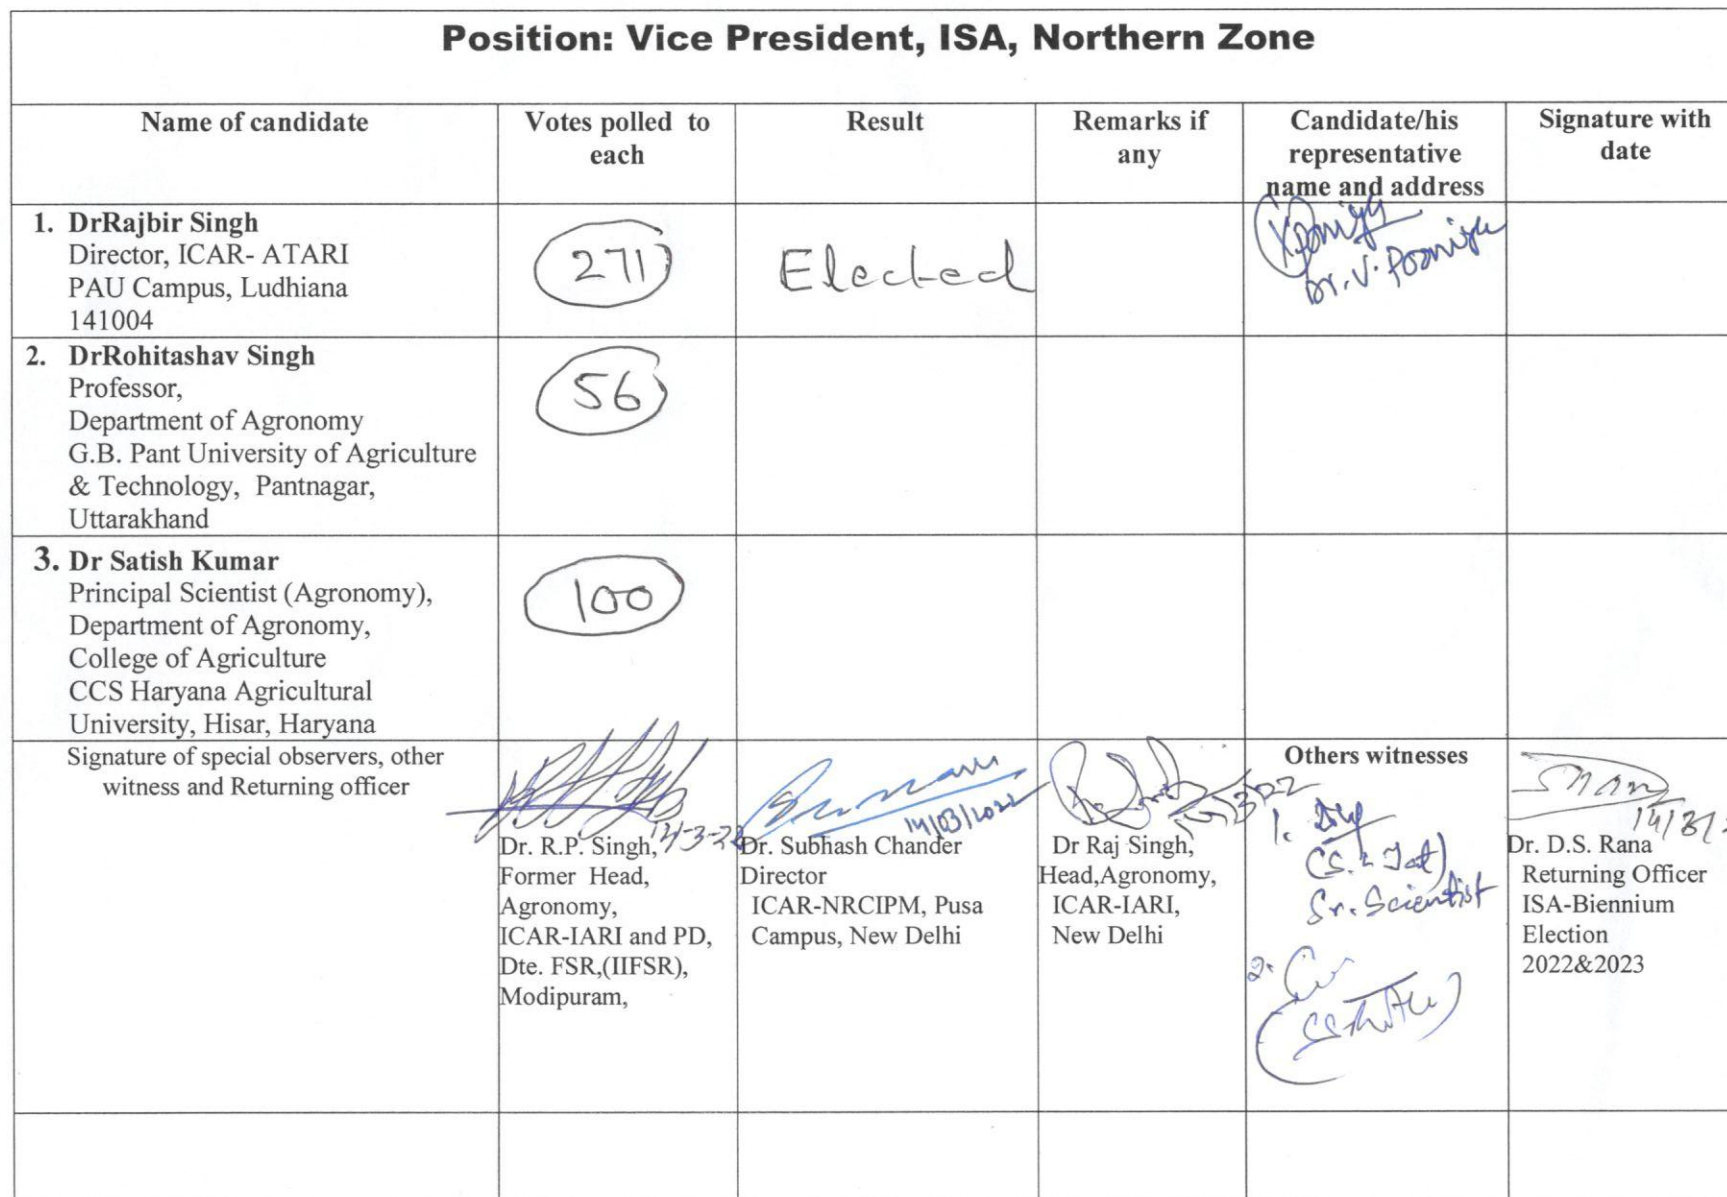 Position: Vice President, ISA, Northern Zone
Name of candidate
Votes polled to
each
Result
Remarks if
any
Candidate/his
representative
name and address
Signature with
date
1. DrRajbir Singh
Director, ICAR- ATARI
PAU Campus, Ludhiana
141004
271
Elected
Dr. V. Pooniya
2. DrRohitashav Singh
Professor,
Department of Agronomy
G.B. Pant University of Agriculture
& Technology, Pantnagar,
Uttarakhand
56
3. Dr Satish Kumar
Principal Scientist (Agronomy),
Department of Agronomy,
College of Agriculture
CCS Haryana Agricultural
University, Hisar, Haryana
100
Signature of special observers, other
witness and Returning officer
14-3-22
Dr. R.P. Singh,
Former Head,
Agronomy,
ICAR-IARI and PD,
Dte. FSR,(IIFSR),
Modipuram,
14/03/2022
Dr. Subhash Chander
Director
ICAR-NRCIPM, Pusa
Campus, New Delhi
Dr Raj Singh,
Head,Agronomy,
ICAR-IARI,
New Delhi
Others witnesses
1.
(S. L. Jat)
Sr. Scientist
2.
14/3/
Dr. D.S. Rana
Returning Officer
ISA-Biennium
Election
2022&2023